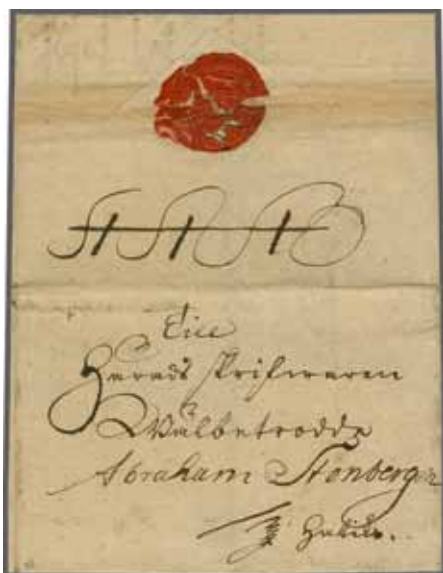 Till
Härads Skrifwaren
Wälbetrodde
Abraham Stenberg